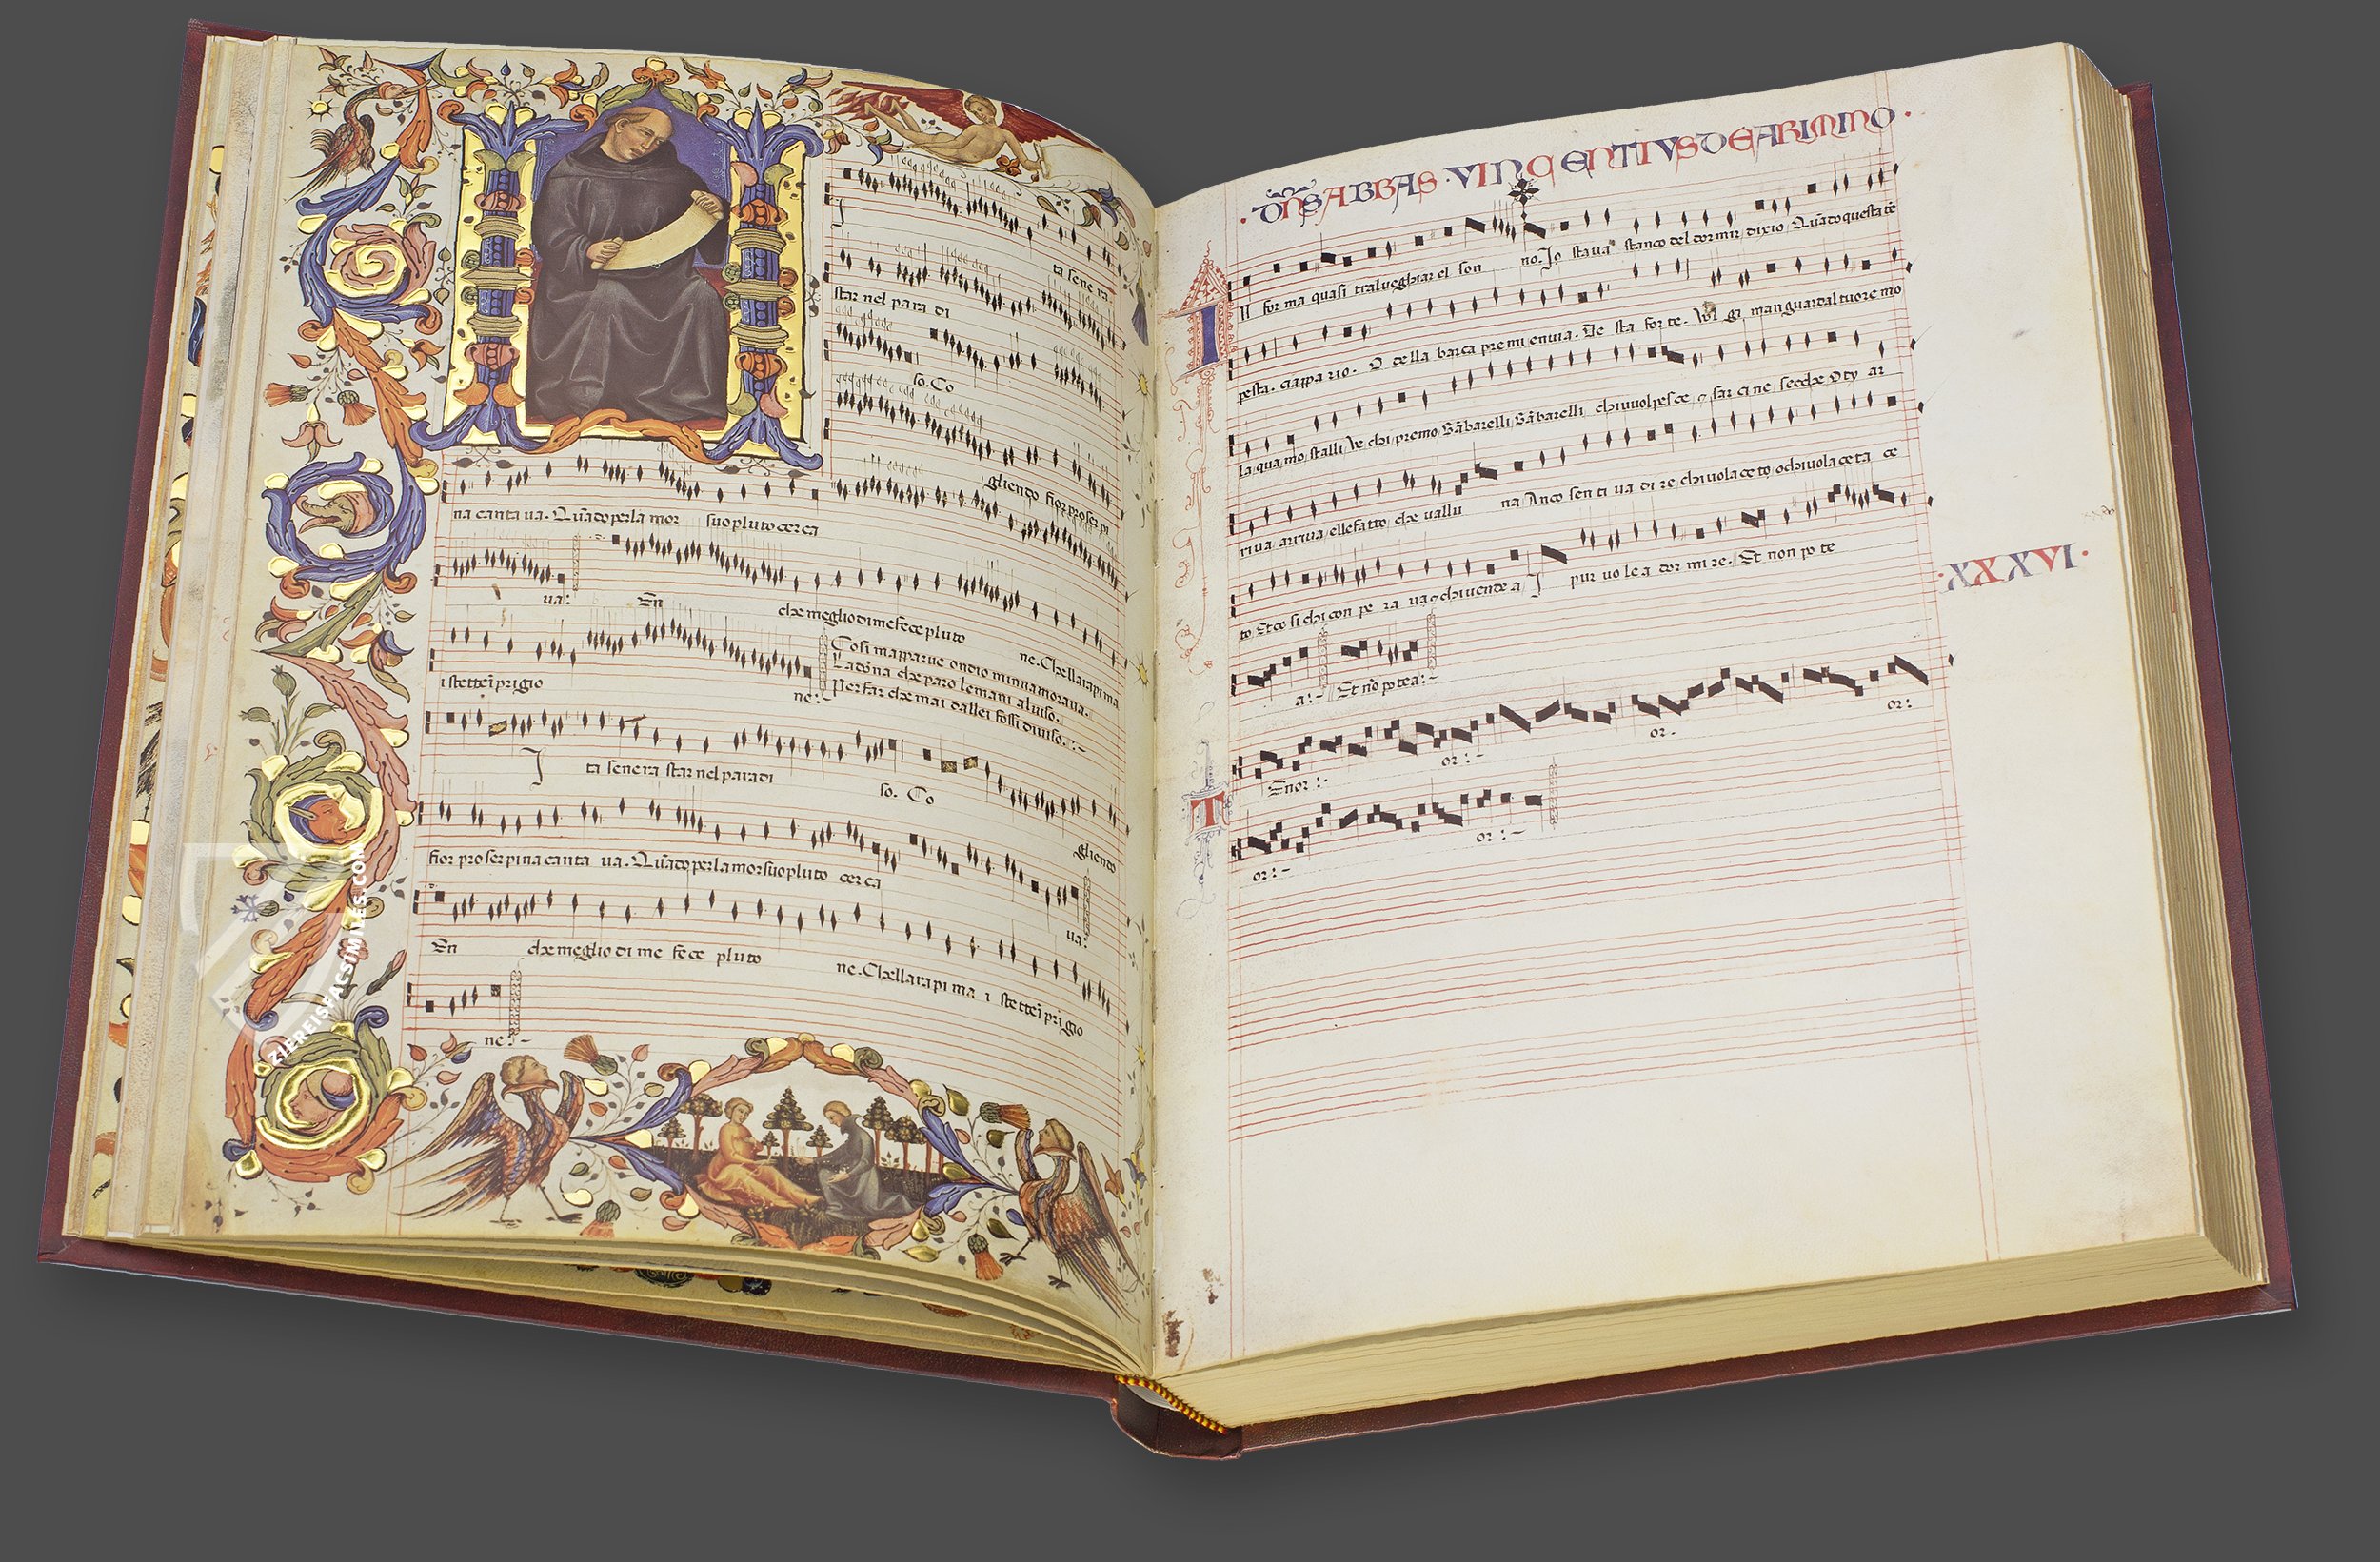 ta sene ra.
star nel para di
so. Co
gliendo fior proserpi
na canta va. Quãdo per la mor suo pluto cerca
va: En che meglio di me fece pluto
ne. Chella rapi ma
i stette ĩ prigio ne:
Cosi mapparve ondio minnamorava.
La dõna che paro le mani al viso.
Per far che mai dallei fossi diviso.
I ta sene ra star nel paradi so. Co gliendo
fior proserpina canta va. Quãdo per la mor suo pluto cerca va:
En che meglio di me fece pluto ne. Chella rapi ma i stette ĩ prigio
ne:
ZIEREISFACSIMILES.COM
DÑS ABBAS · VINCENTIVS DE ARIMINO ·
IN for ma quasi tra lveghiar el son no. Io stava stanco del dormir dixio Quãdo questa tẽ
pesta. ciappa rio. O della barca premi e nvia. De sta for te. Vol gi man guarda l tuo re mo
la qua mo stalli Ve chi premo Gãbarelli Gãbarelli
ri va arriva elle fatto che vallu na Anco senti va di re chi vola ceto o chi vola ceta ce
to Et co si chi con pe ra va
I pur volea dormire. Et non po te
a: Et nõ potea:
XXXVI ·
TEnor: or: or. or:
or: or: